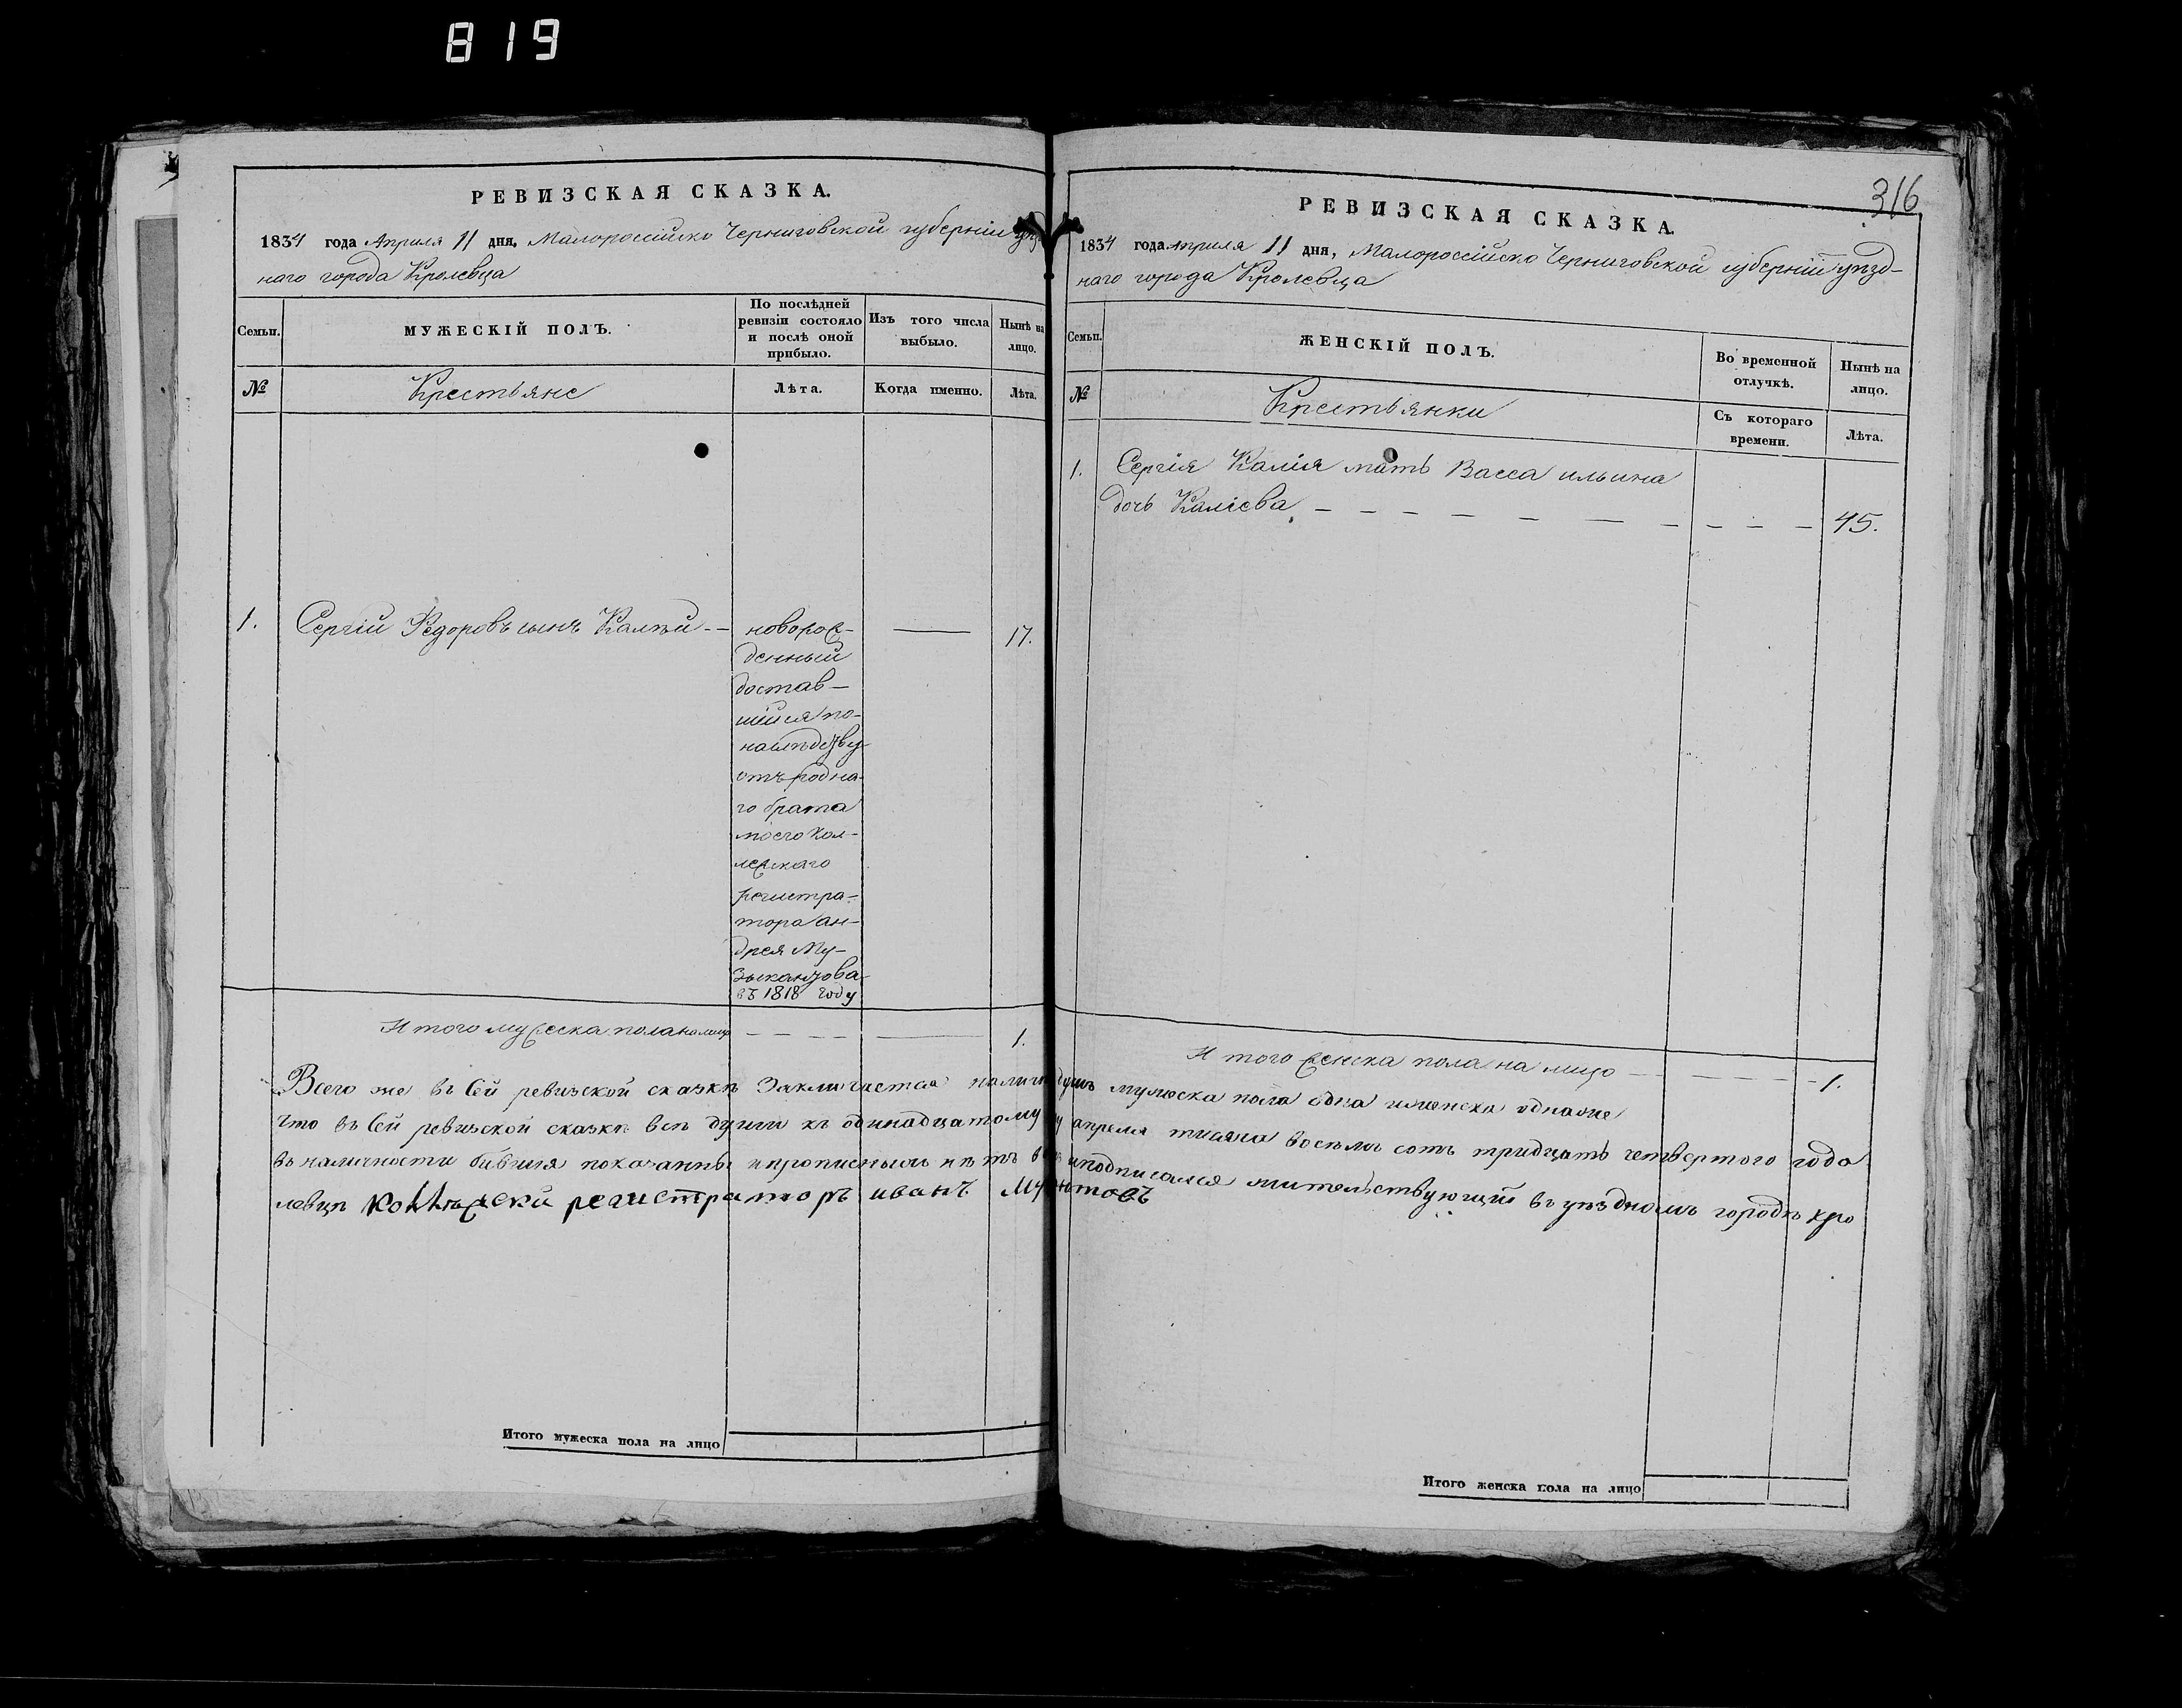 819
РЕВИЗСКАЯ СКАЗКА.
1834 года Апреля 11 дня, Малороссійско Черниговской губерніи уѣзд
наго города Кролевца
Семьи.
МУЖЕСКІЙ ПОЛЪ.
По послѣдней
ревизіи состояло
и послѣ оной
прибыло.
Изъ того числа
выбыло.
Нынѣ на
лицо.
№
Крестьяне
Лѣта.
Когда именно.
Лѣта.
1.
Сергій Федоровъ сынъ Калѣй
17.
новорож-
денный
достав-
шійся по-
наслѣдству
отъ родна-
го брата
моего кол-
лежскаго
регистра-
тора Ан-
дрея Му-
зыкантова
въ 1818 году
Итого мужеска пола на лицо
1.
316
РЕВИЗСКАЯ СКАЗКА.
1834 года Апреля 11 дня, Малороссійско Черниговской губерніи уѣзд-
наго города Кролевца
Семьи.
ЖЕНСКІЙ ПОЛЪ.
Во временной
отлучкѣ.
Нынѣ на
лицо.
№
Крестьянки
Съ котораго
времени.
Лѣта.
1.
Сергія Калія мать Васса ильина
дочь Каліева
45.
Итого женска пола на лицо
1.
Всего же въ Сей ревизской сказкѣ Заключается душъ мужеска пола одна и женска одна же
Что въ Сей ревизской сказкѣ всѣ души къ одинадцатому апреля тисяча восемь сотъ тридцать четвертого года
въ наличности бившия показанны и прописныхъ нѣтъ въ томъ и подписался жительствующий въ уѣздномъ городѣ Кро
левцѣ Коллежский регистраторъ иванъ
Итого мужеска пола на лицо
Итого женска пола на лицо